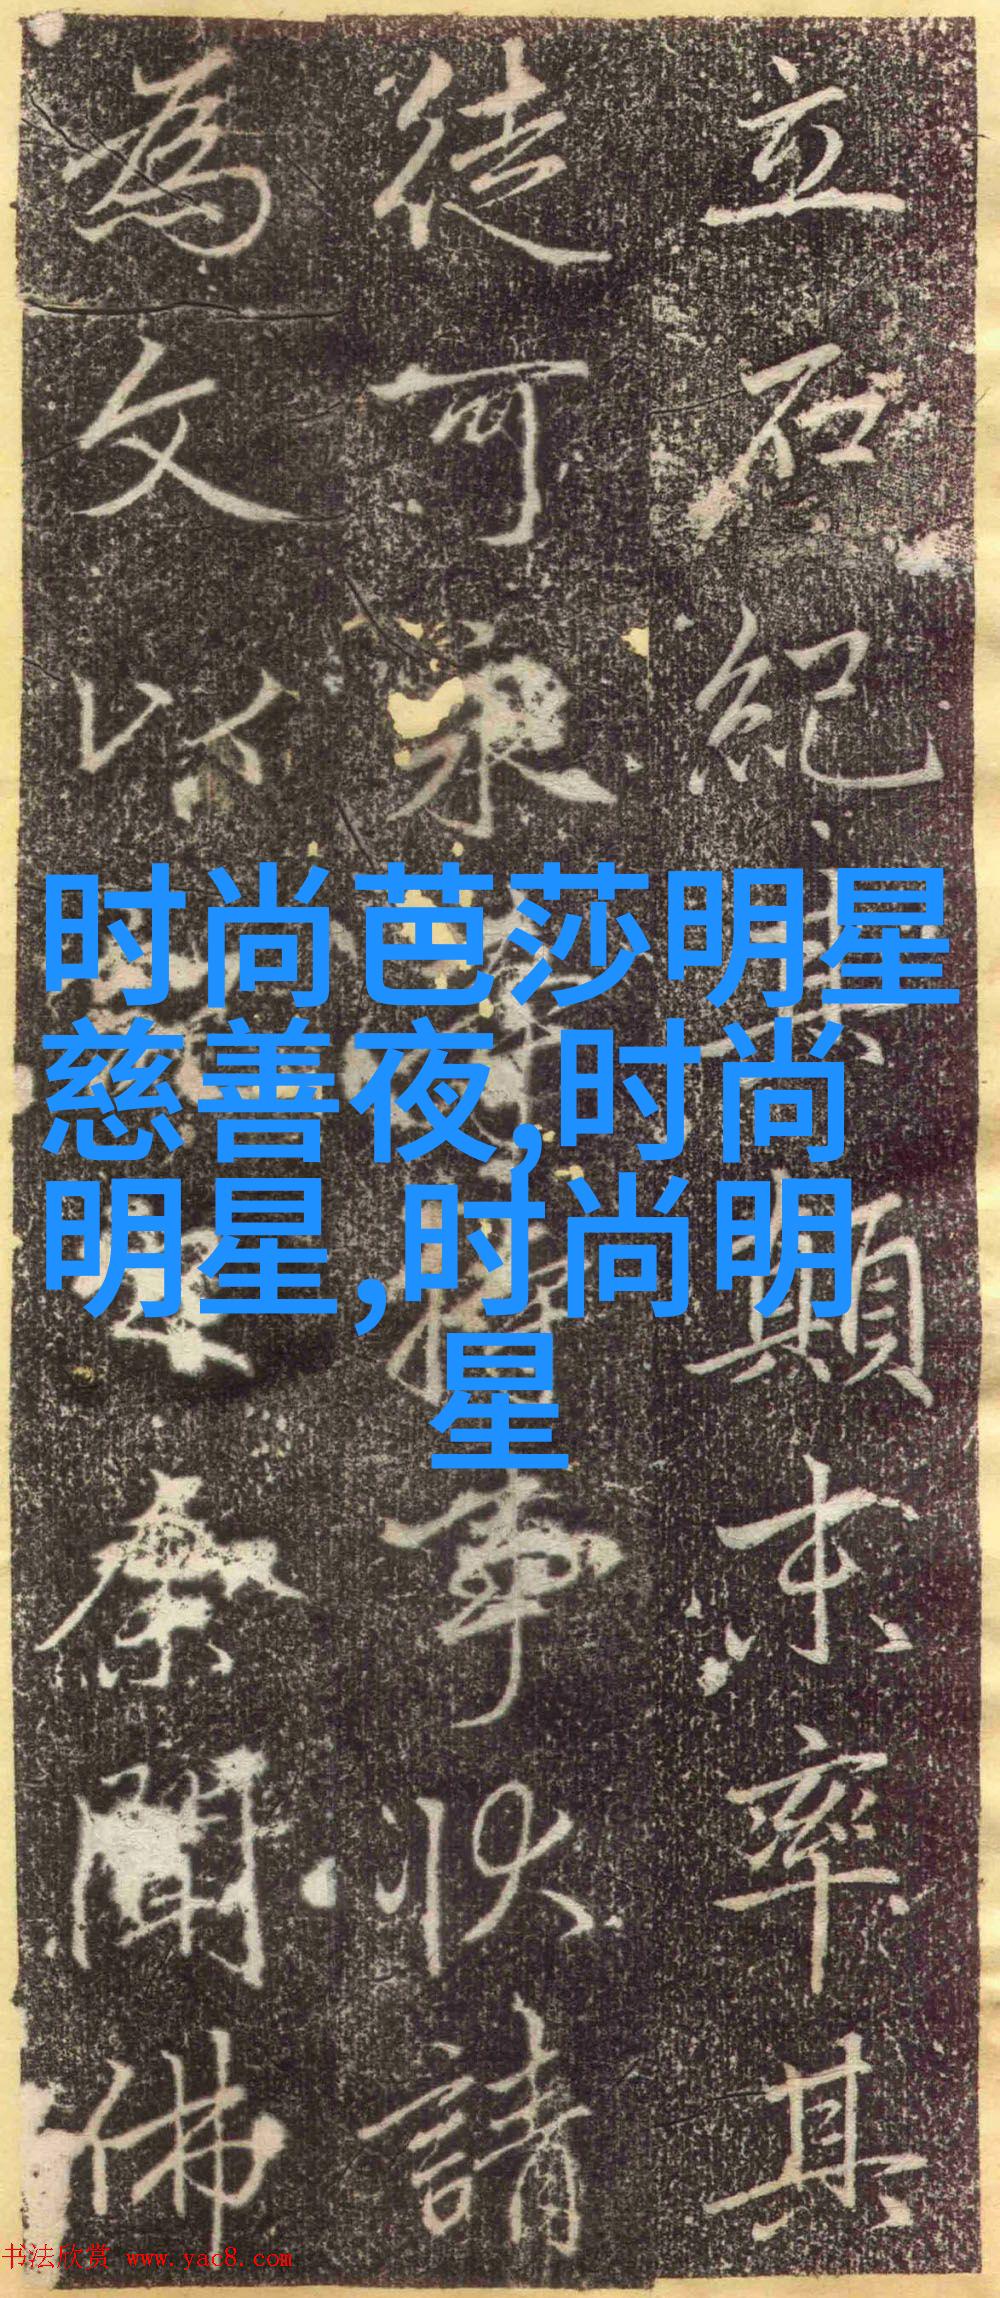 时尚芭莎明星
慈善夜,时尚
明星,时尚明
星
立石紀其顛末率其
徒可永持事狀請
為文以余聞佛
书法欣赏 www.yac8.com